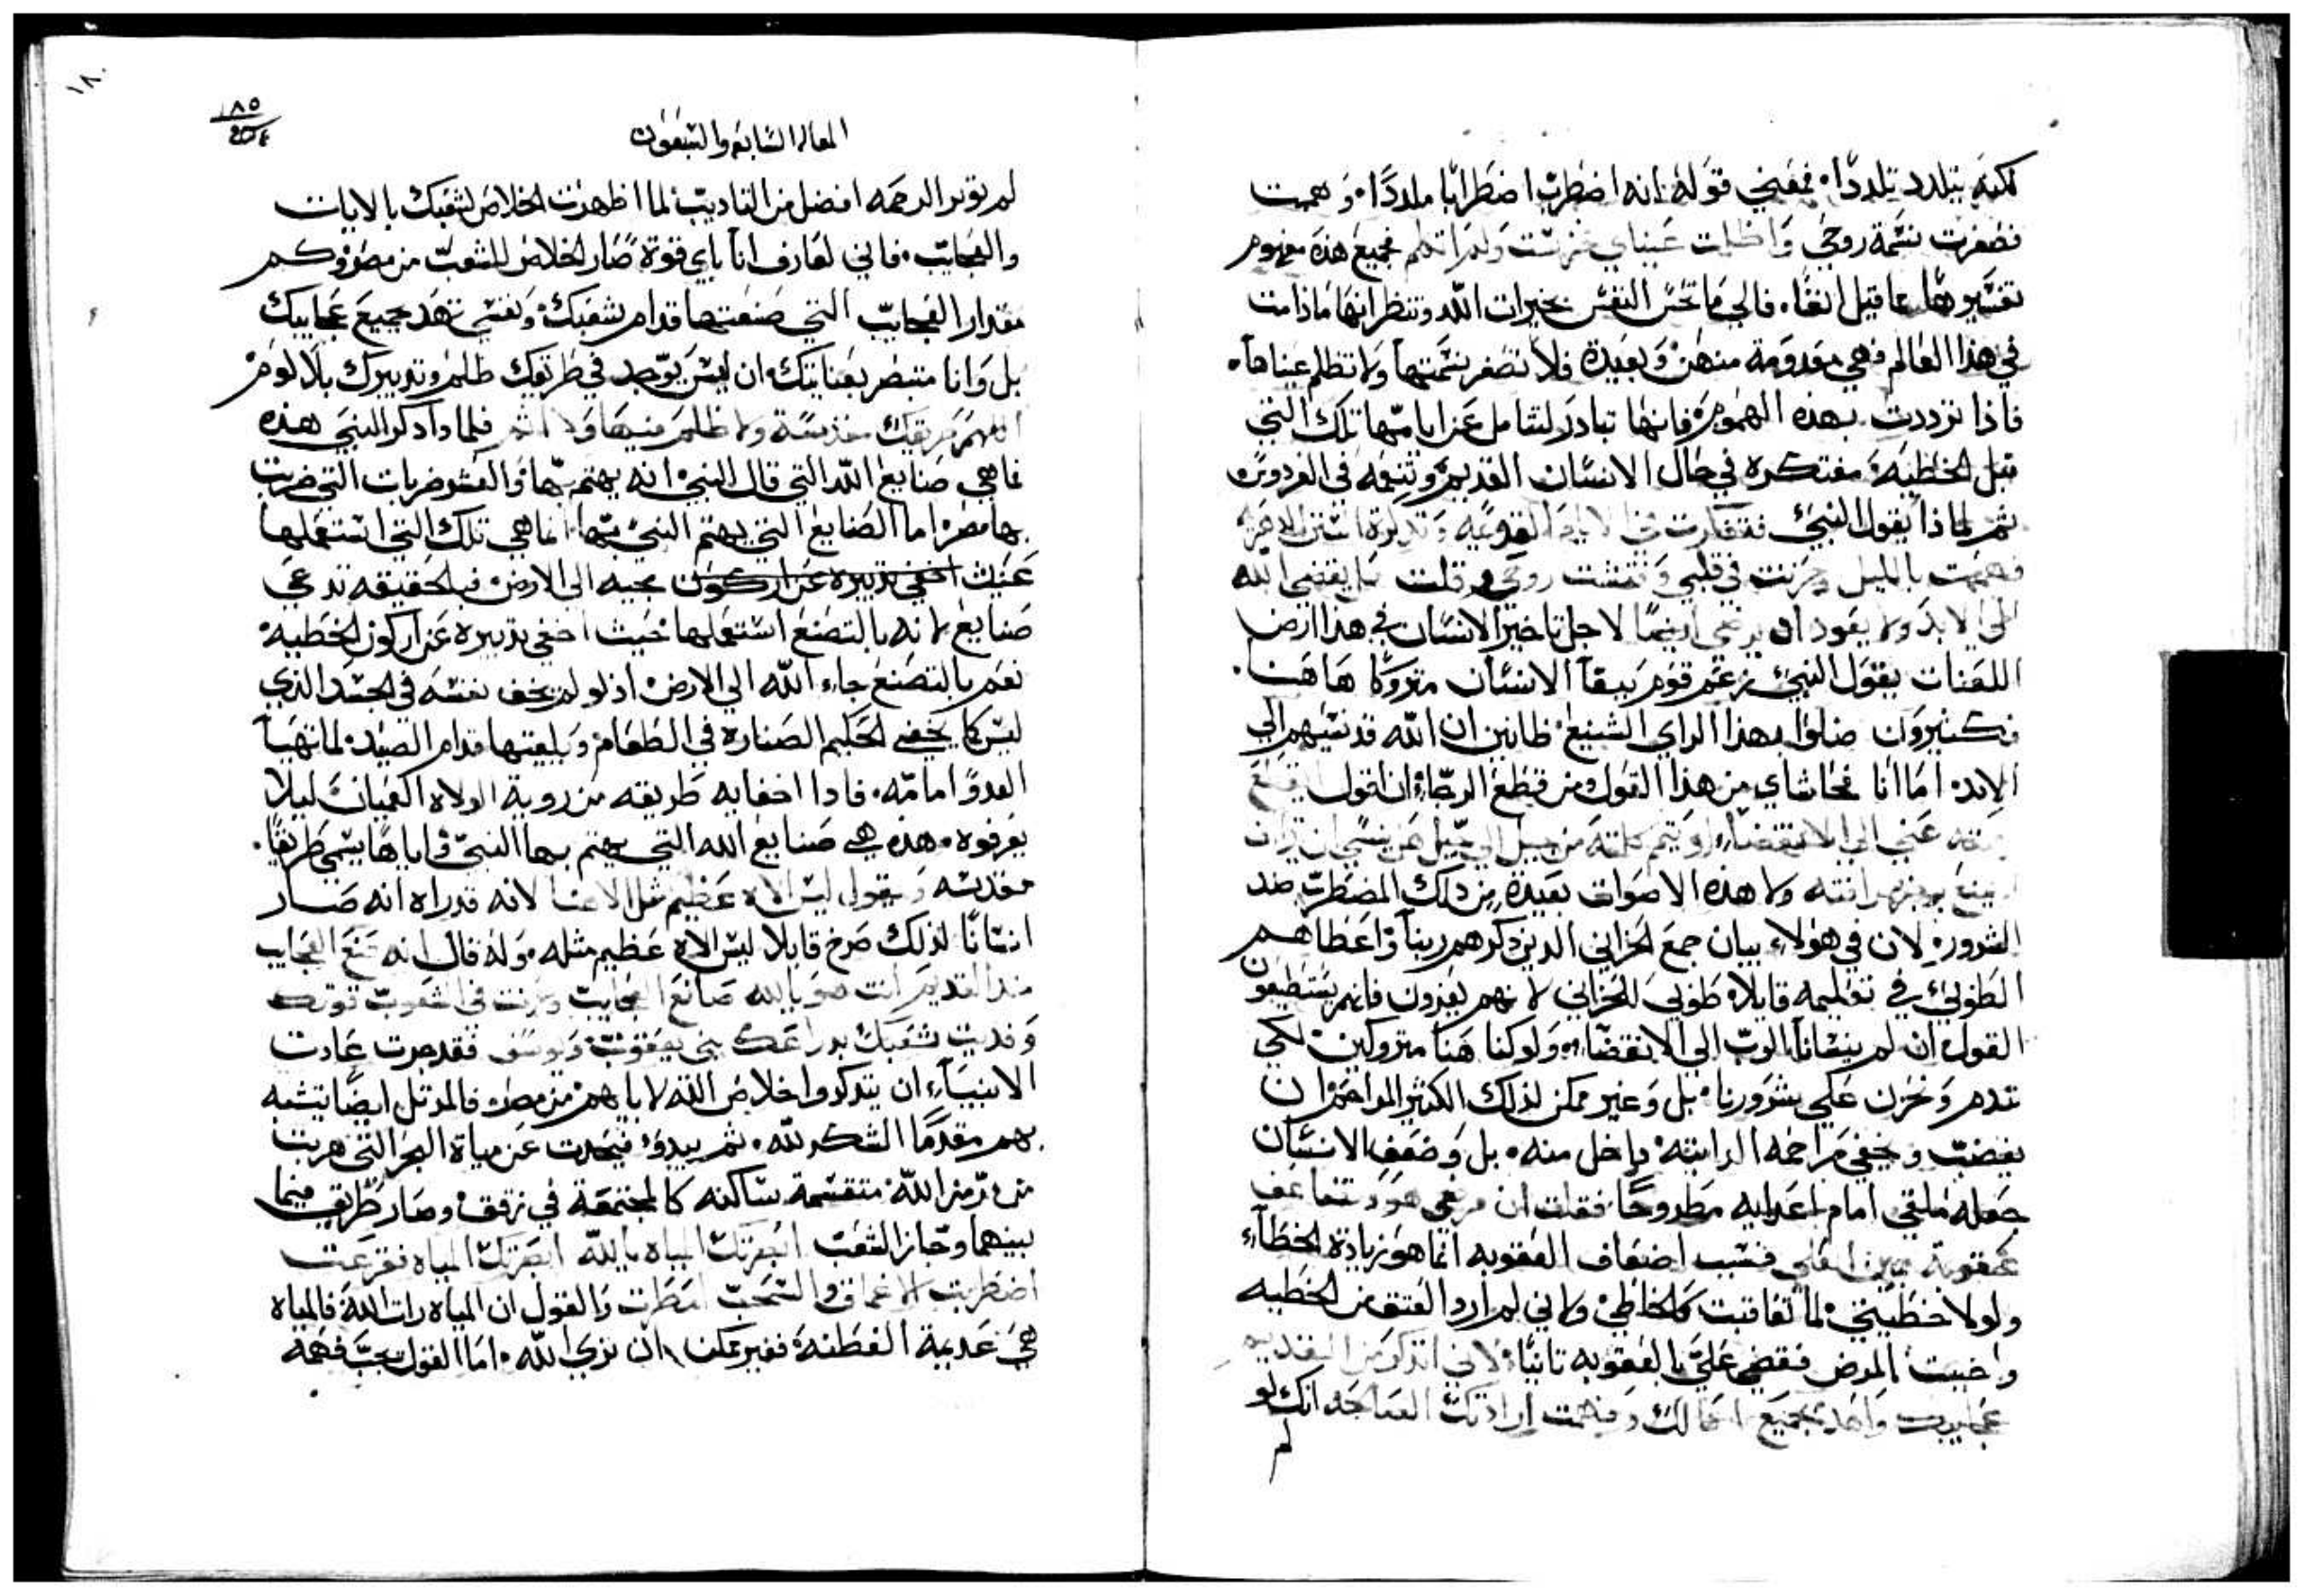 لكنه يتلدد تلددًا، فمعني قوله انه اضطرب اضطرابًا ملددًا، وهممت
فصغرت نسمة روحي واظلمت عيناي خرست ولم اتكلم فجميع هذه مفهوم
تفسيرها مما قيل انفًا، فالي ما تحس النفس بخيرات الله وتنظر انها ماذامت
في هذا العالم فهي معدومة منهن وبعيدة فلا تصغر نسمتها ولا تظلم عيناها،
فاذا ترددت بهذه الهموم فانها تبادر لتتامل عن ايامها تلك التي
قبل الخطية مفتكره في حال الانسان القديم وتنعمه في الفردوس
ثم لماذا يقول النبي فتفكرت في الايام القديمه وتذكرة السنين الدهرية
فهممت بالليل وحزنت في قلبي وفتشت روحي وقلت هل يقصي الله
الي الابد ولا يعود ان يرضي ايضًا لاجل تاخير الانسان في هذا ارض
اللعنات يقول النبي زعم قوم يبقا الانسان متروكًا هاهنا،
فكثيرون ضلوا بهذا الراي الشنيع ظانين ان الله قد نسيهم الي
الابد، اما انا فحاشاي من هذا القول ومن قطع الرجاء ان اقول يقطع
رحمته عني الي الانقضاء او يتم كلمته من جيل الي جيل هل ينسي ان يتران
او يمنع برجزه رافته ولا هذه الاصوات بعيدة من ذلك المضطرب ضد
الشرور لان في هولاء بيان جمع الحزاني الذين ذكرهم ربنا واعطاهم
الطوبي في تعليمه قايلا طوبي للحزاني لانهم يعزون فانهم يستطيعون
القول ان لم ينسانا الرب الي الانقضاء ولو كنا هنا متروكين لكي
نندم ونحزن علي شرورنا، بل وغير ممكن لذلك الكثير المراحم ان
يغضب ويخفي مراحمه الراتبه داخل منه، بل وضعف الانسان
جعله ملقي امام اعدايه مطروحًا فقلت ان مرضي هو وتتضاعف
عقوبة يمين العلي فسبب اضعاف العقوبه انما هو زيادة الخطاء
ولولا خطيتي لما تعاقبت كالخاطي ولاني لم ارد العتق من الخطيه
واحببت المرض فقضي علي بالعقوبه ثانيًا، لاني اتذكر من القديم
عجايبك واهذ بجميع اعمالك وفهمت ارادتك الصالحة انك لو
لم
١٨٠
١٨٥
المقاله السابعه والسبعون
لم توثر الرحمه افضل من التاديب لما اظهرت الخلاص لشعبك بالايات
والعجايب، فاني لعارف انا باي قوة صار الخلاص للشعب من مصر وكم
مقدار العجايب التي صنعتها قدام شعبك، ونفسي تهذ بجميع عجايبك
بل وانا متبصر بعنايتك، ان ليس يوجد في طريقك ظلم وتدبيرك بلا لوم
اللهم طريقك مقدسة ولا ظلم فيها ولا اثم فلماذا ذكر النبي هذه
فما هي صنايع الله التي قال النبي انه يهتم بها، والعشر ضربات التي ضربت
بها مصر، اما الصنايع التي يهتم النبي بها انما هي تلك التي استعملها
عنيت اخفي تدبيره عن اركون مجيه الي الارض فبالحقيقه تدعي
صنايع لانه بالتصنع استعملها حيث اخفي تدبيره عن اركون الخطيه،
نعم بالتصنع جاء الله الي الارض، اذ لو لم يخف نفسه في الجسد الذي
لبس كما يخفي الحكيم الصنارة في الطعام ويلقيها قدام الصيد، لما تهيا
العدو امامه، فاذا اخفايه طريقه من روية الولاه العميان ليلا
يعرفوه، هذه هي صنايع الله التي يهتم بها النبي واياها يسمي طريقًا،
مقدسه ويقول ليس الاه عظيم مثل الاهنا لانه قد راه انه صار
انسانًا لذلك صرخ قايلا ليس الاه عظيم مثله، وله قال انه صنع العجايب
منذ القديم انت هو يا الله صانع العجايب عرفت في الشعوب قوتك
وفديت شعبك بذراعك بني يعقوب ويوسف فقد جرت عادت
الانبياء ان يتذكروا خلاص الله لاباهم من مصر، فالمرتل ايضًا تشبه
بهم مقدمًا الشكر لله، ثم يبدو فيتحدث عن مياة البحر التي هربت
من رمز الله، منقسمة ساكنه كالمجتمعة في زقق، وصار طريق فيما
بينهما وجاز الشعب ابصرتك المياه يا الله ابصرتك المياه ففزعت
اضطربت الاعماق والسحب امطرت والقول ان المياه رات الله، فالمياه
هي عديمة الفطنة، فغير ممكن ان تري الله، اما القول يجب فهمه